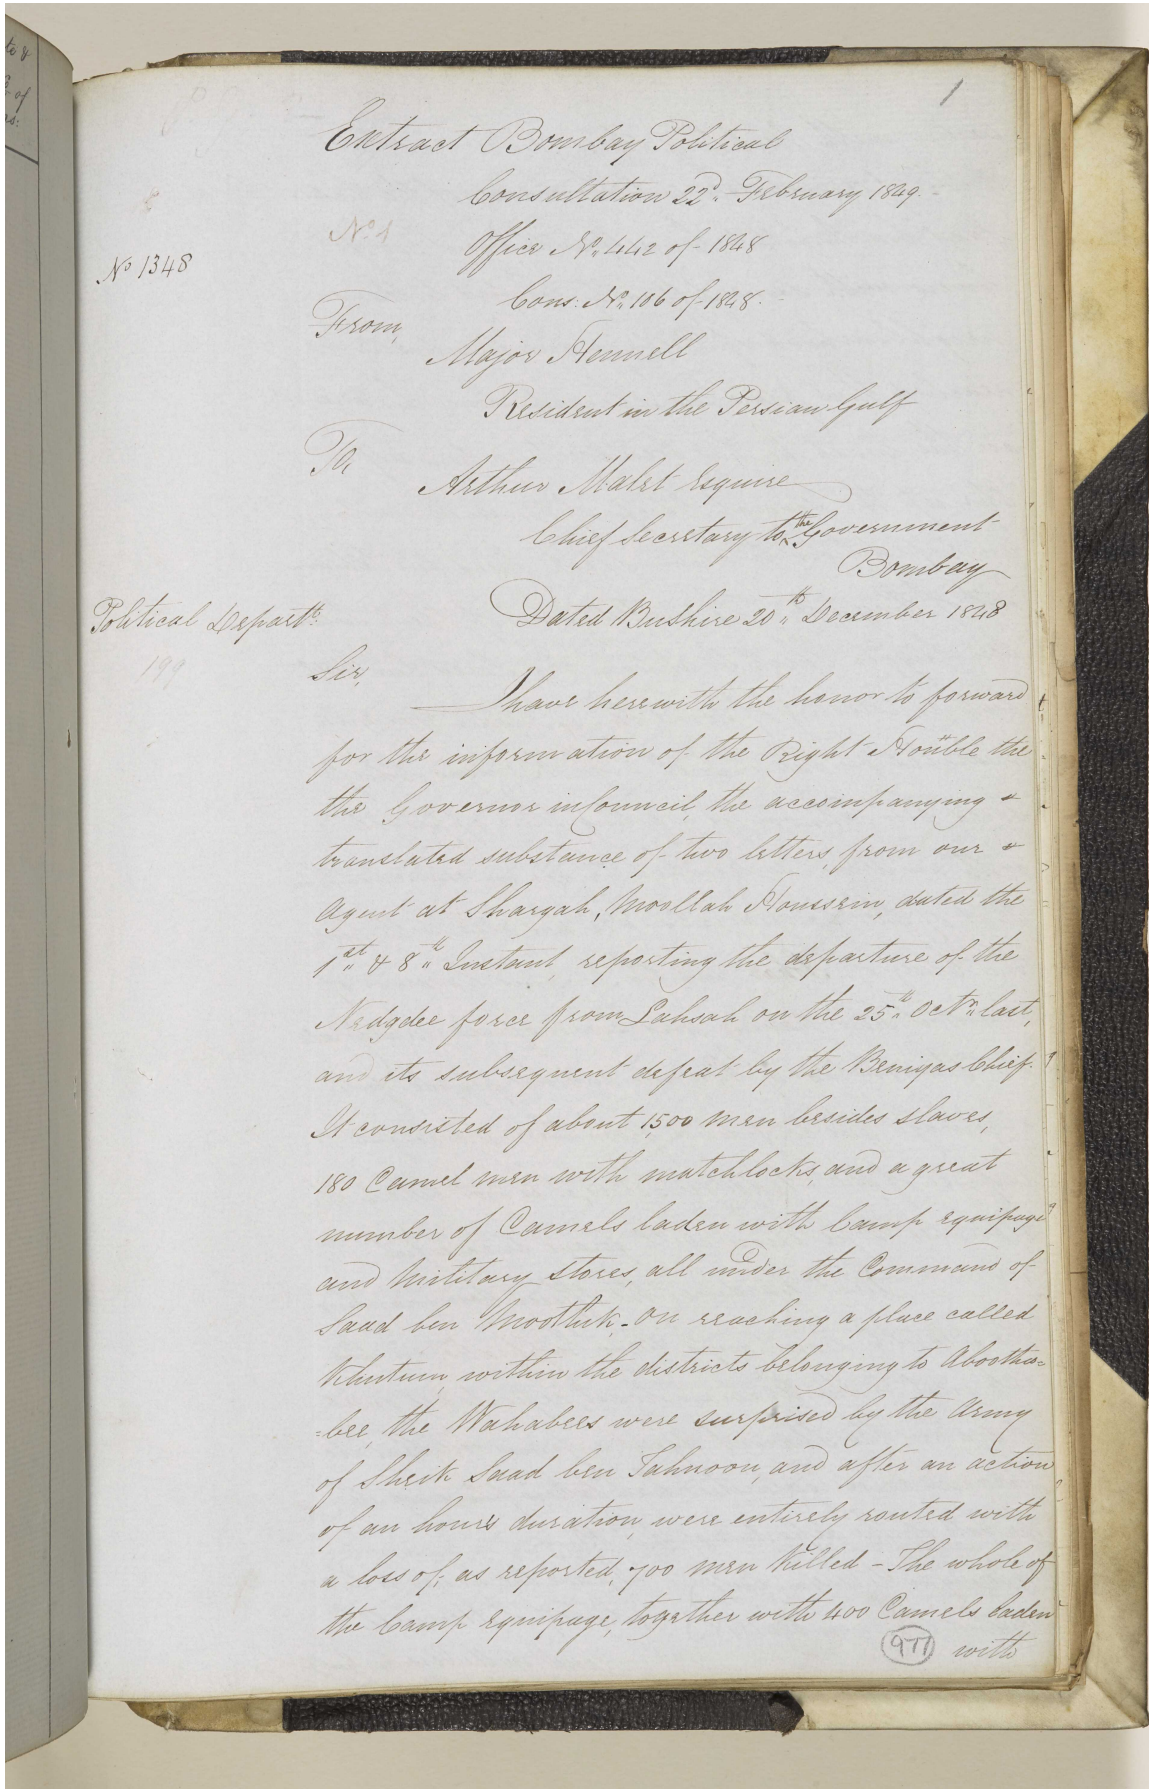 1
Extract Bombay Political
Consultation 22d. February 1849.
No 1
Office No. 442 of 1848
No 1348
Cons: No. 106 of 1848.
From,
Major Hennell
Resident in the Persian Gulf
To,
Arthur Malet Esquire
Chief Secretary to the Government
Bombay
Political Departt:
Dated Bushire 20th December 1848
199
Sir,
I have herewith the honor to forward
for the information of the Right Honble the
the Governor in Council, the accompanying
translated substance of two letters, from our
Agent at Shargah, Moollah Houssein, dated the
1st & 8th Instant, reporting the departure of the
Nedgdee force from Lahsah on the 25th Octr. last,
and its subsequent defeat by the Beniyas Chief.
It consisted of about 1500 men besides slaves,
180 Camel men with matchlocks, and a great
number of Camels laden with Camp equipage
and Military stores, all under the Command of
Saad ben Moothuk. On reaching a place called
Khutum, within the districts belonging to Aboothu=
=bee, the Wahabees were surprised by the Army
of Sheik Saad ben Tahnoon, and after an action
of an hours duration, were entirely routed with
a loss of, as reported, 700 men killed - The whole of
the Camp equipage, together with 400 Camels laden
977
with